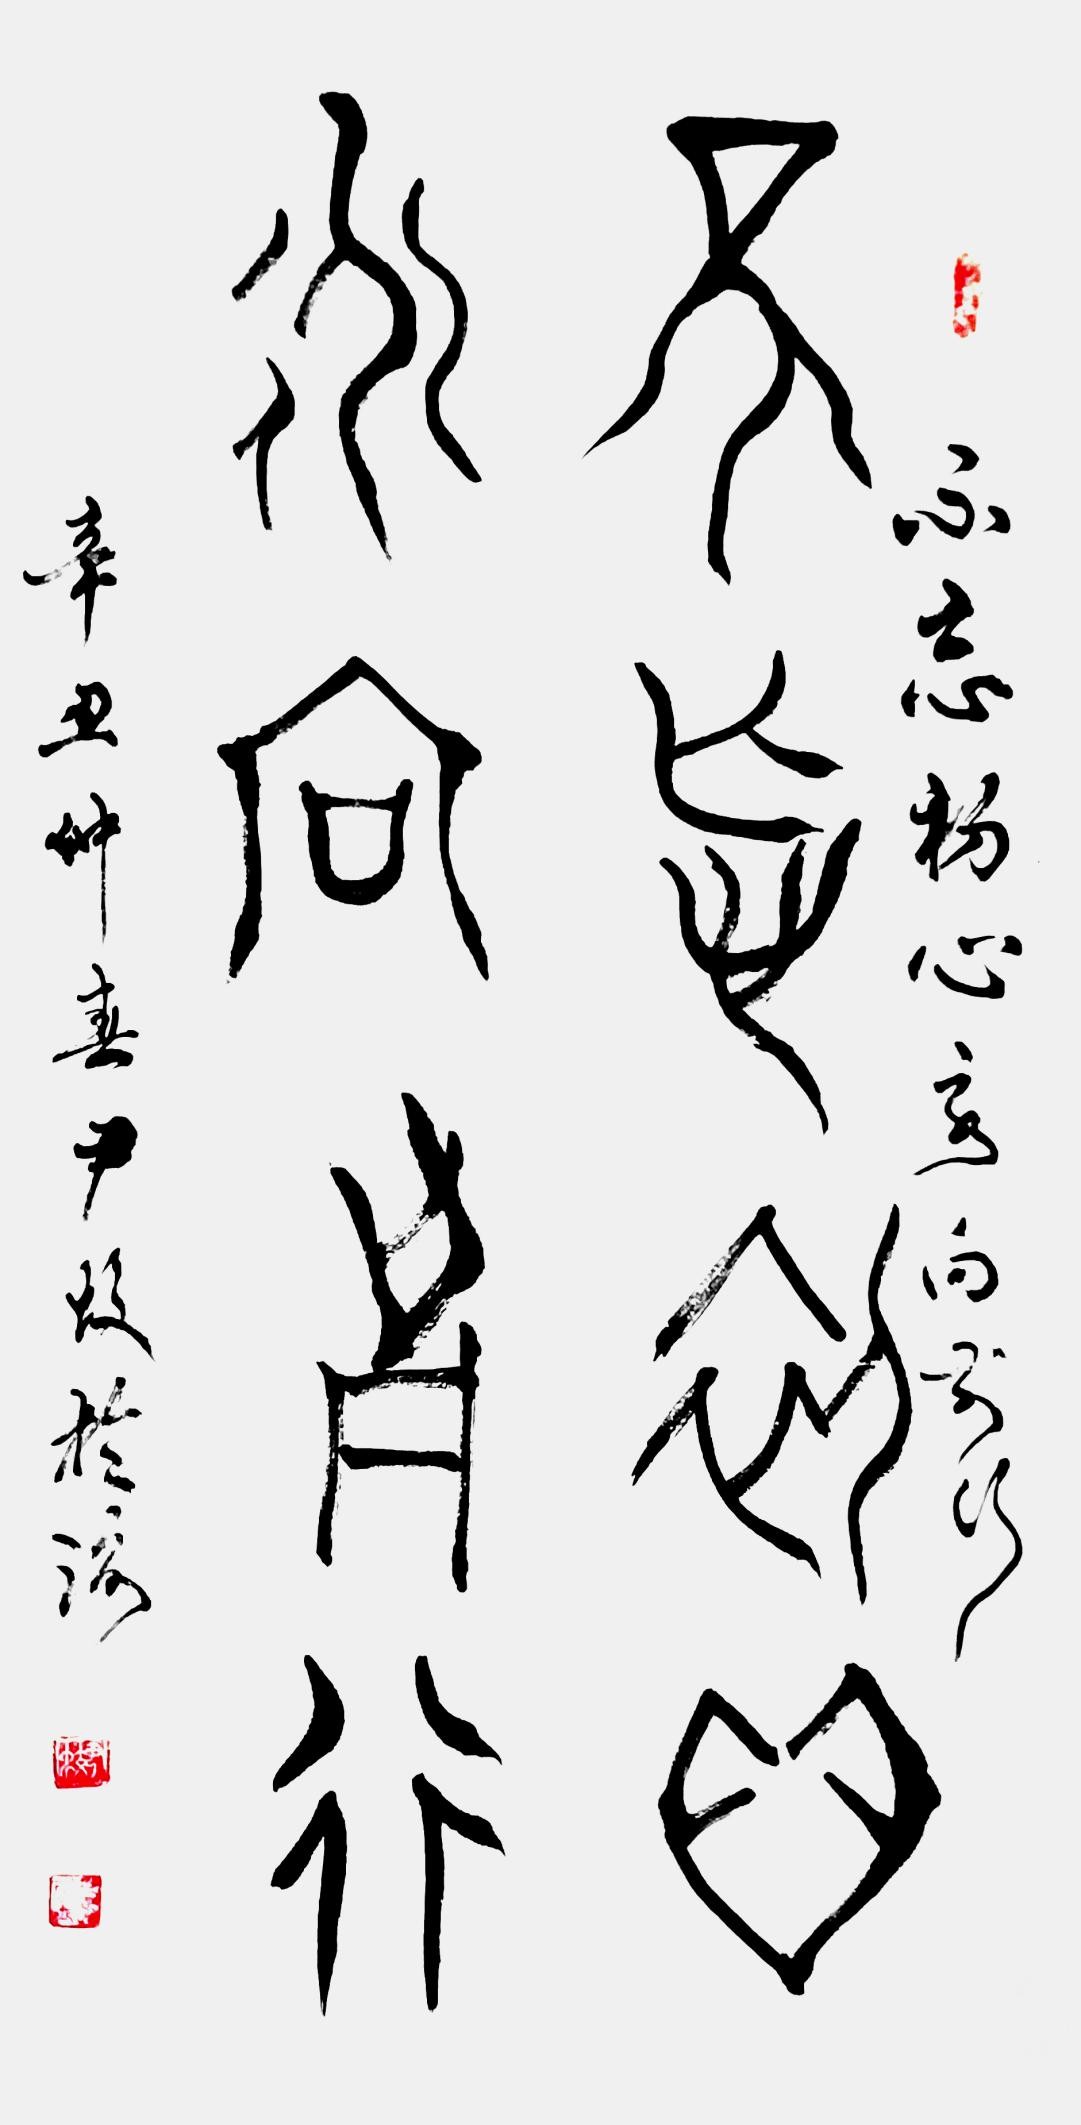 不忘初心
永向前行
不忘初心永向前行
辛丑仲春尹政於洛